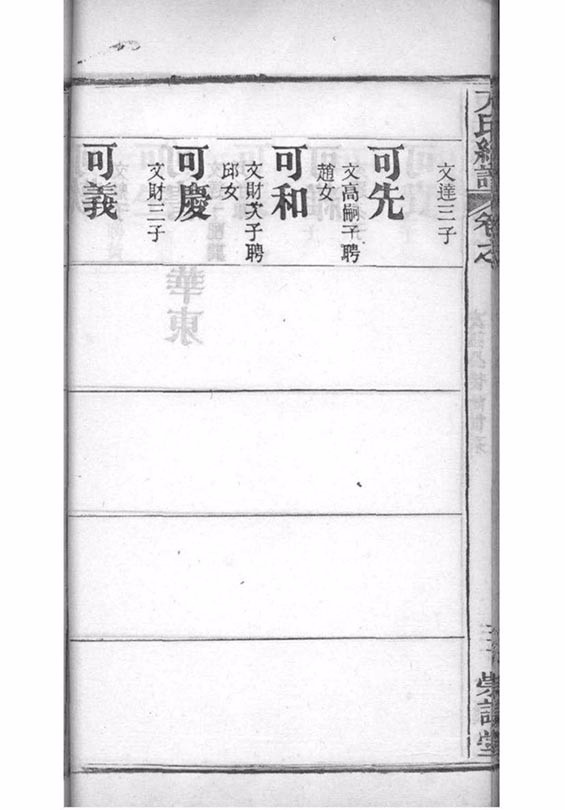 氏總譜
卷之
文達三子
可先
文高嗣子聘
趙女
可和
文財次子聘
邱女
可慶
文財三子
可義